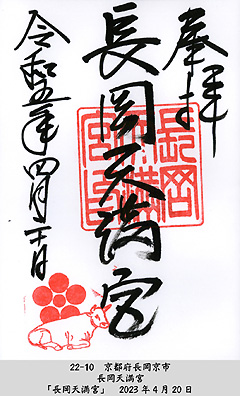 奉拝
長岡天満宮
令和五年四月二十日
長岡天満宮
22-10 京都府長岡京市
長岡天満宮
「長岡天満宮」 2023年4月20日